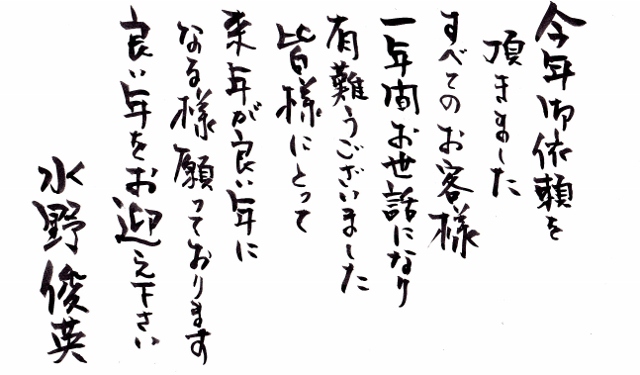 今年御依頼を
頂きました
すべてのお客様
一年間お世話になり
有難うございました
皆様にとって
来年が良い年に
なる様願っております
良い年をお迎え下さい
水野俊英